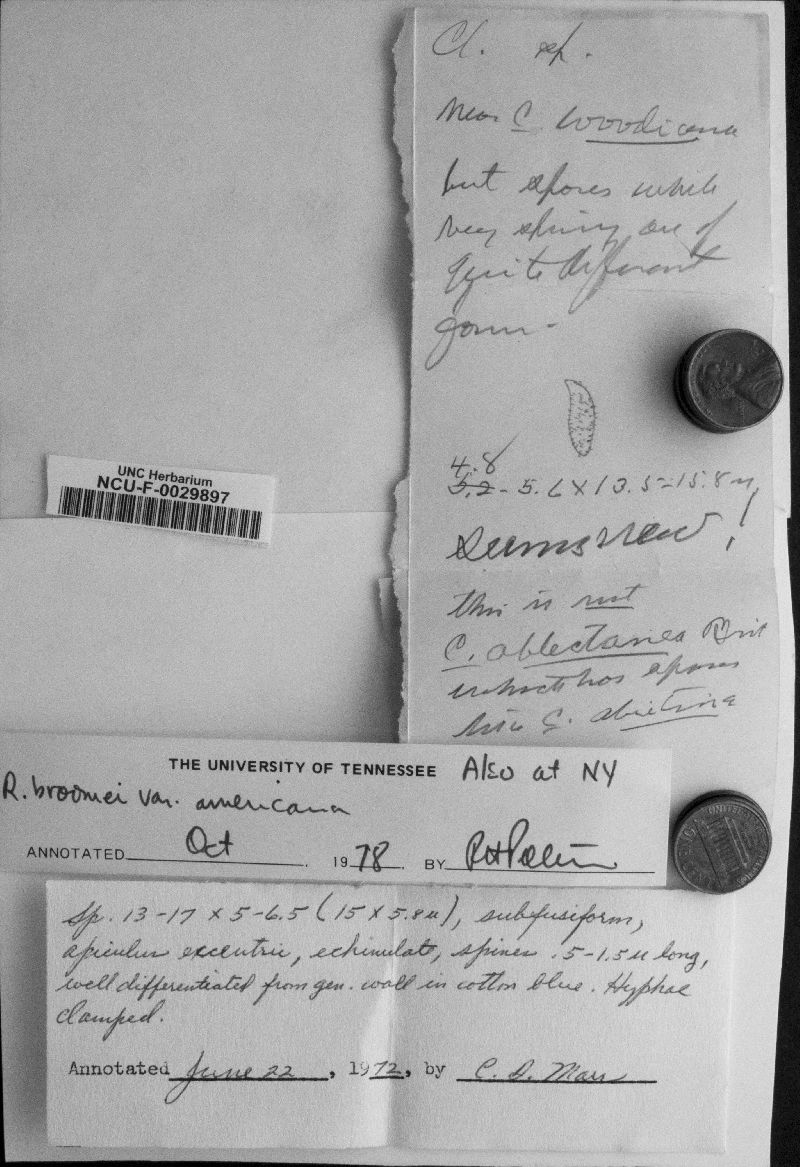 Cl. sp.
Near C woodiana
but spores while
very spiny are of
quite different
form.
4.8
5.2 - 5.6 X 13.5 - 15.8 u,
seems new!
this is not
C. oblectanea Brit
which has spores
like C. abietina
UNC Herbarium
NCU-F-0029897
THE UNIVERSITY OF TENNESSEE Also at NY
R. broomei var. americana
ANNOTATED Oct 1978 BY
Sp. 13-17 x 5-6.5 (15 x 5.8u), subfusiform,
apiculus excentric, echinulate, spines .5-1.5u long,
well differentiated from gen. wall in cotton blue. Hyphae
clamped.
Annotated June 22, 1972, by C. D. Marr